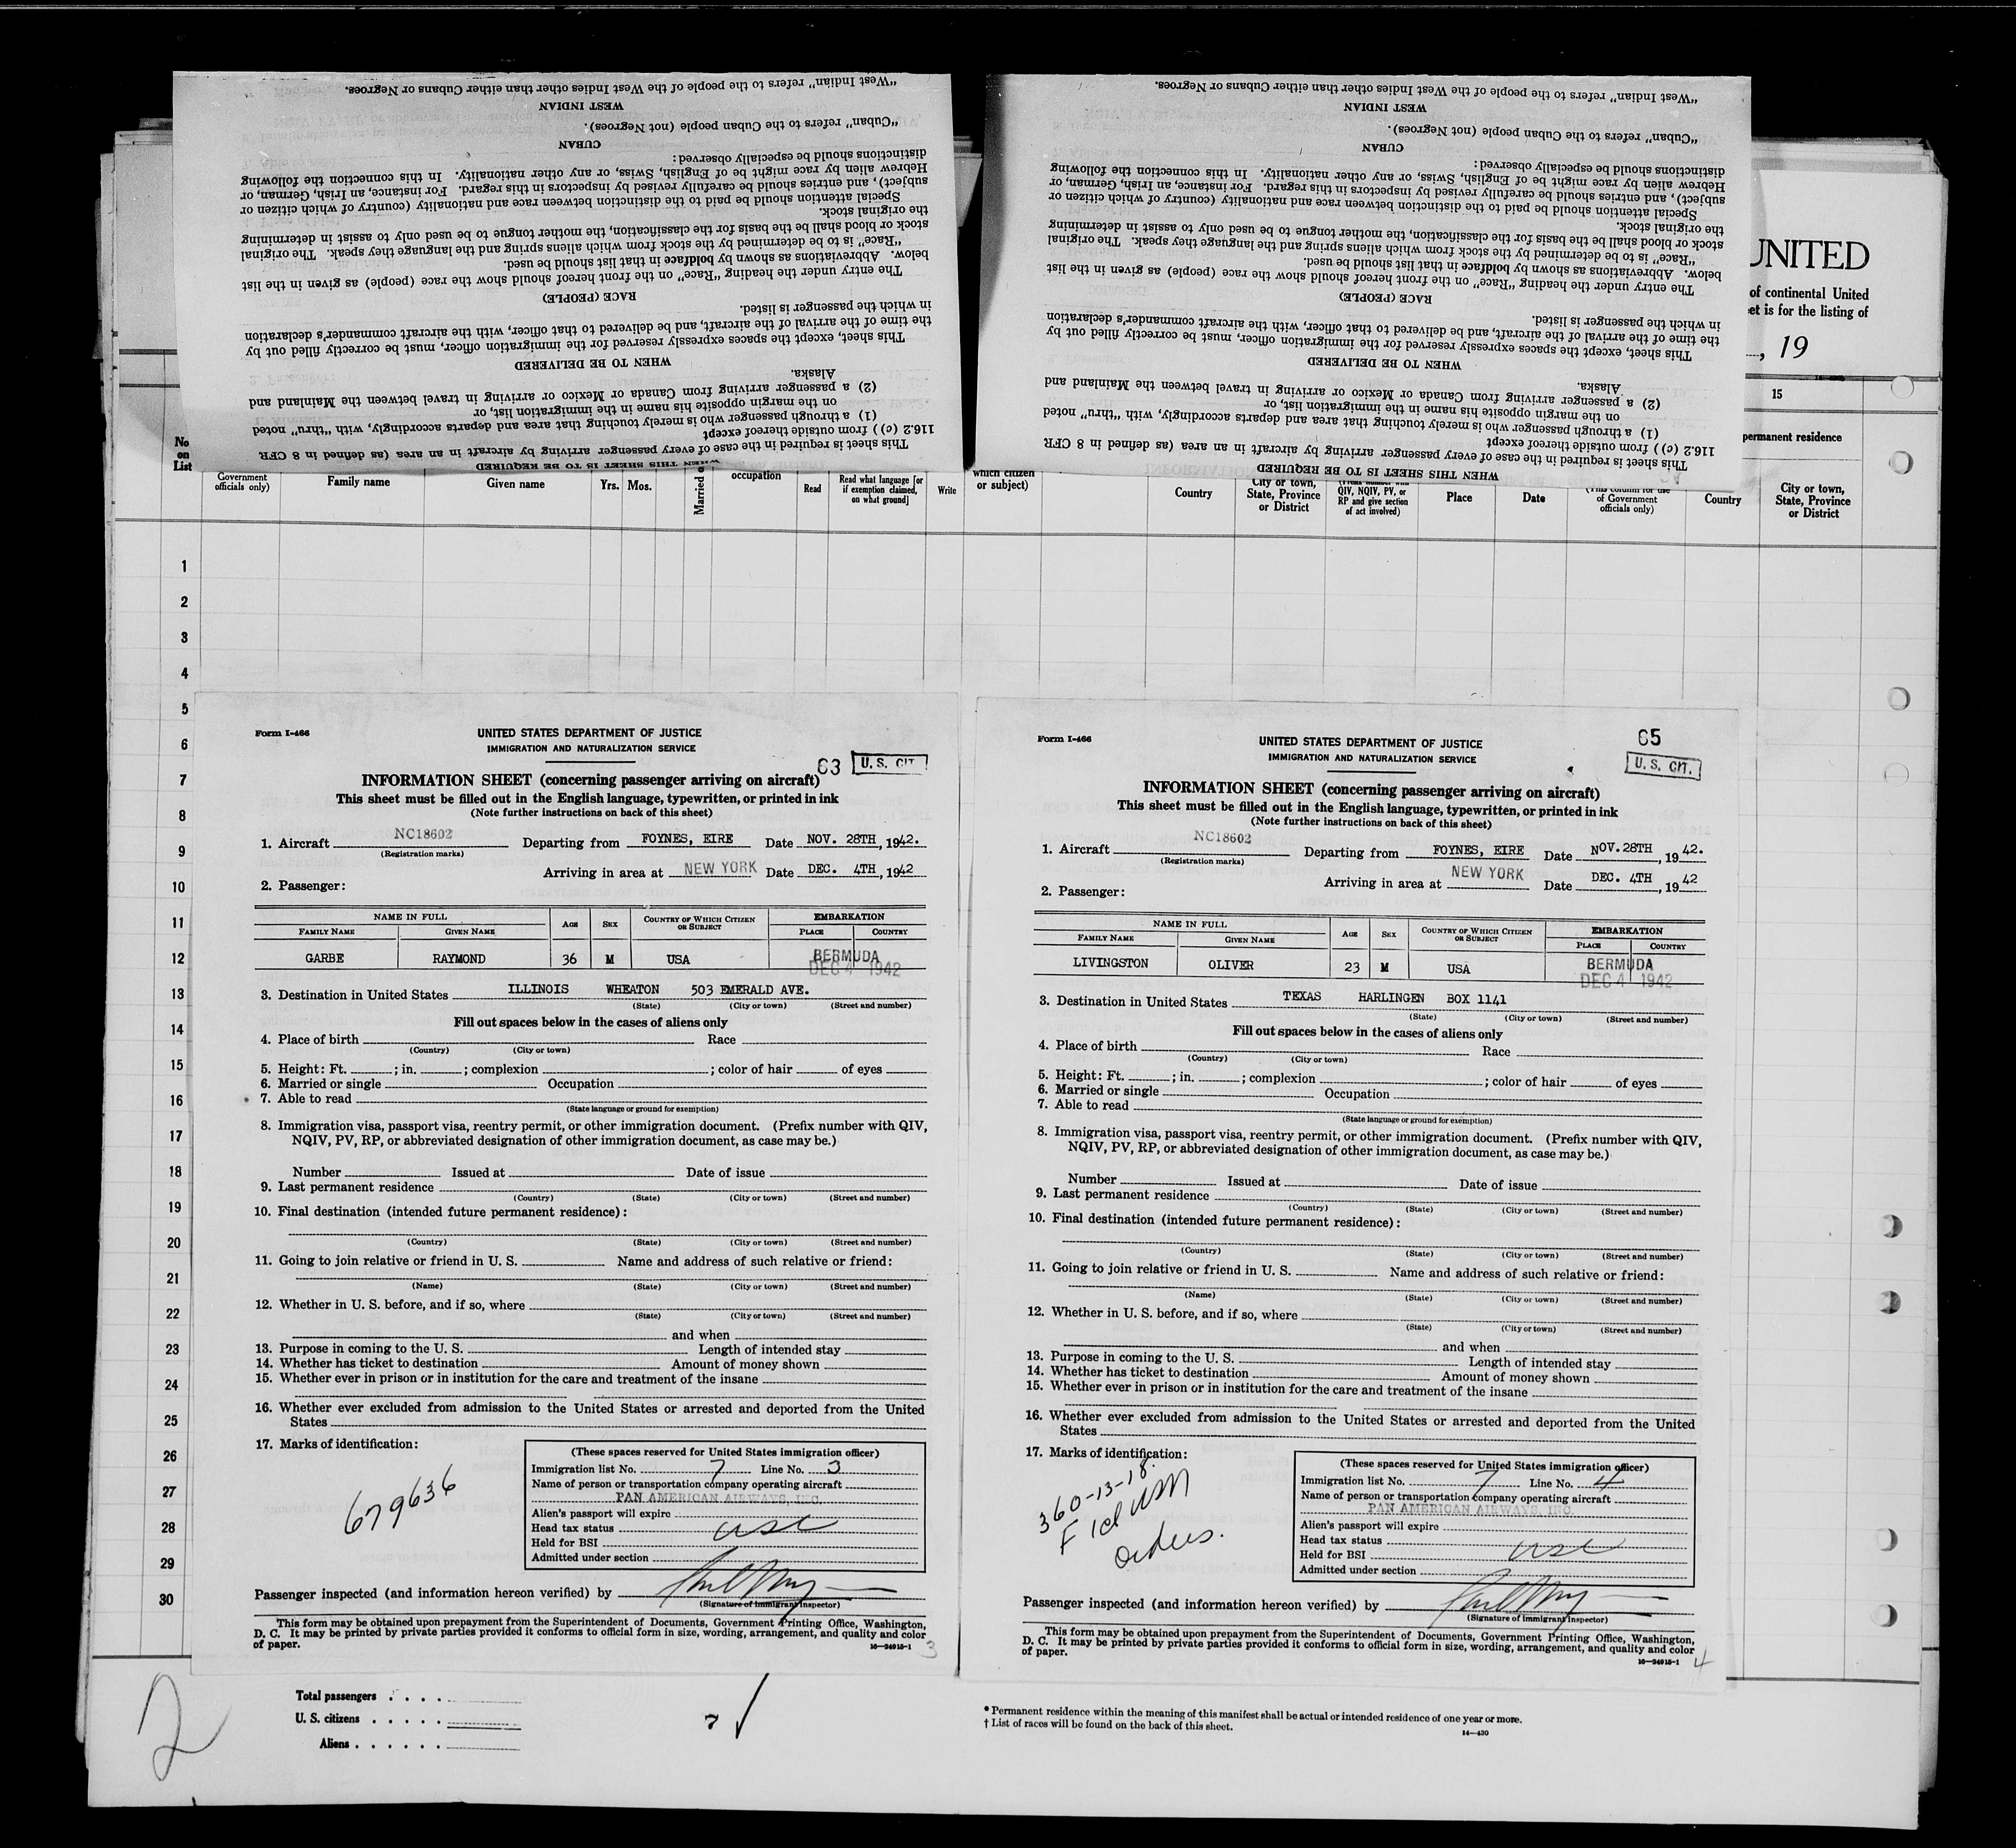 "West Indian" refers to the people of the West Indies other than either Cubans or Negroes.
WEST INDIAN
"Cuban" refers to the Cuban people (not Negroes).
CUBAN
distinctions should be especially observed:
Hebrew alien by race might be of English, Swiss, or any other nationality. In this connection the following
subject), and entries should be carefully revised by inspectors in this regard. For instance, an Irish, German, or
Special attention should be paid to the distinction between race and nationality (country of which citizen or
the original stock.
stock or blood shall be the basis for the classification, the mother tongue to be used only to assist in determining
"Race" is to be determined by the stock from which aliens spring and the language they speak. The original
below. Abbreviations as shown by boldface in that list should be used.
The entry under the heading "Race" on the front hereof should show the race (people) as given in the list
RACE (PEOPLE)
in which the passenger is listed.
the time of the arrival of the aircraft, and be delivered to that officer, with the aircraft commander's declaration
This sheet, except the spaces expressly reserved for the immigration officer, must be correctly filled out by
WHEN TO BE DELIVERED
Alaska.
(2) a passenger arriving from Canada or Mexico or arriving in travel between the Mainland and
on the margin opposite his name in the immigration list, or
(1) a through passenger who is merely touching that area and departs accordingly, with "thru" noted
116.2 (c)) from outside thereof except
This sheet is required in the case of every passenger arriving by aircraft in an area (as defined in 8 CFR
WHEN THIS SHEET IS TO BE REQUIRED
"West Indian" refers to the people of the West Indies other than either Cubans or Negroes.
WEST INDIAN
"Cuban" refers to the Cuban people (not Negroes).
CUBAN
distinctions should be especially observed:
Hebrew alien by race might be of English, Swiss, or any other nationality. In this connection the following
subject), and entries should be carefully revised by inspectors in this regard. For instance, an Irish, German, or
Special attention should be paid to the distinction between race and nationality (country of which citizen or
the original stock.
stock or blood shall be the basis for the classification, the mother tongue to be used only to assist in determining
"Race" is to be determined by the stock from which aliens spring and the language they speak. The original
below. Abbreviations as shown by boldface in that list should be used.
The entry under the heading "Race" on the front hereof should show the race (people) as given in the list
RACE (PEOPLE)
in which the passenger is listed.
the time of the arrival of the aircraft, and be delivered to that officer, with the aircraft commander's declaration
This sheet, except the spaces expressly reserved for the immigration officer, must be correctly filled out by
WHEN TO BE DELIVERED
Alaska.
(2) a passenger arriving from Canada or Mexico or arriving in travel between the Mainland and
on the margin opposite his name in the immigration list, or
(1) a through passenger who is merely touching that area and departs accordingly, with "thru" noted
116.2 (c)) from outside thereof except
This sheet is required in the case of every passenger arriving by aircraft in an area (as defined in 8 CFR
WHEN THIS SHEET IS TO BE REQUIRED
UNITED
of continental United
et is for the listing of
, 19
15
permanent residence
No on List
Government officials only)
Family name
Given name
Yrs. Mos.
Married o
occupation
Read
Read what language [or if exemption claimed, on what ground]
Write
which citizen or subject)
Country
City or town, State, Province or District
QIV, NQIV, PV, or RP and give section of act involved)
Place
Date
(This column for use of Government officials only)
Country
City or town, State, Province or District
1
2
3
4
5
6
7
8
9
10
11
12
13
14
15
16
17
18
19
20
21
22
23
24
25
26
27
28
29
30
Form I-466
UNITED STATES DEPARTMENT OF JUSTICE
IMMIGRATION AND NATURALIZATION SERVICE
63 U. S. CIT.
INFORMATION SHEET (concerning passenger arriving on aircraft)
This sheet must be filled out in the English language, typewritten, or printed in ink
(Note further instructions on back of this sheet)
1. Aircraft NC18602 Departing from FOYNES, EIRE Date NOV. 28TH, 1942.
(Registration marks)
Arriving in area at NEW YORK Date DEC. 4TH, 1942
2. Passenger:
NAME IN FULL AGE SEX COUNTRY OF WHICH CITIZEN OR SUBJECT EMBARKATION
FAMILY NAME GIVEN NAME PLACE COUNTRY
GARBE RAYMOND 36 M USA BERMUDA
DEC 4 1942
3. Destination in United States ILLINOIS WHEATON 503 EMERALD AVE.
(State) (City or town) (Street and number)
Fill out spaces below in the cases of aliens only
4. Place of birth Race
(Country) (City or town)
5. Height: Ft. ; in. ; complexion ; color of hair of eyes
6. Married or single Occupation
7. Able to read
(State language or ground for exemption)
8. Immigration visa, passport visa, reentry permit, or other immigration document. (Prefix number with QIV,
NQIV, PV, RP, or abbreviated designation of other immigration document, as case may be.)
Number Issued at Date of issue
9. Last permanent residence
(Country) (State) (City or town) (Street and number)
10. Final destination (intended future permanent residence):
(Country) (State) (City or town) (Street and number)
11. Going to join relative or friend in U. S. Name and address of such relative or friend:
(Name) (State) (City or town) (Street and number)
12. Whether in U. S. before, and if so, where
(State) (City or town) (Street and number)
and when
13. Purpose in coming to the U. S. Length of intended stay
14. Whether has ticket to destination Amount of money shown
15. Whether ever in prison or in institution for the care and treatment of the insane
16. Whether ever excluded from admission to the United States or arrested and deported from the United
States
17. Marks of identification:
679636
(These spaces reserved for United States immigration officer)
Immigration list No. 7 Line No. 3
Name of person or transportation company operating aircraft
PAN AMERICAN AIRWAYS, INC.
Alien's passport will expire
Head tax status usc
Held for BSI
Admitted under section
Passenger inspected (and information hereon verified) by
(Signature of Immigrant Inspector)
This form may be obtained upon prepayment from the Superintendent of Documents, Government Printing Office, Washington,
D. C. It may be printed by private parties provided it conforms to official form in size, wording, arrangement, and quality and color
of paper. 16—24915-1
3
Form I-466
UNITED STATES DEPARTMENT OF JUSTICE
IMMIGRATION AND NATURALIZATION SERVICE
65
U. S. CIT.
INFORMATION SHEET (concerning passenger arriving on aircraft)
This sheet must be filled out in the English language, typewritten, or printed in ink
(Note further instructions on back of this sheet)
1. Aircraft NC18602 Departing from FOYNES, EIRE Date NOV. 28TH, 1942.
(Registration marks)
Arriving in area at NEW YORK Date DEC. 4TH, 1942
2. Passenger:
NAME IN FULL AGE SEX COUNTRY OF WHICH CITIZEN OR SUBJECT EMBARKATION
FAMILY NAME GIVEN NAME PLACE COUNTRY
LIVINGSTON OLIVER 23 M USA BERMUDA
DEC 4 1942
3. Destination in United States TEXAS HARLINGEN BOX 1141
(State) (City or town) (Street and number)
Fill out spaces below in the cases of aliens only
4. Place of birth Race
(Country) (City or town)
5. Height: Ft. ; in. ; complexion ; color of hair of eyes
6. Married or single Occupation
7. Able to read
(State language or ground for exemption)
8. Immigration visa, passport visa, reentry permit, or other immigration document. (Prefix number with QIV,
NQIV, PV, RP, or abbreviated designation of other immigration document, as case may be.)
Number Issued at Date of issue
9. Last permanent residence
(Country) (State) (City or town) (Street and number)
10. Final destination (intended future permanent residence):
(Country) (State) (City or town) (Street and number)
11. Going to join relative or friend in U. S. Name and address of such relative or friend:
(Name) (State) (City or town) (Street and number)
12. Whether in U. S. before, and if so, where
(State) (City or town) (Street and number)
and when
13. Purpose in coming to the U. S. Length of intended stay
14. Whether has ticket to destination Amount of money shown
15. Whether ever in prison or in institution for the care and treatment of the insane
16. Whether ever excluded from admission to the United States or arrested and deported from the United
States
17. Marks of identification:
360-13-18
orders.
(These spaces reserved for United States immigration officer)
Immigration list No. 7 Line No. 4
Name of person or transportation company operating aircraft
PAN AMERICAN AIRWAYS, INC.
Alien's passport will expire
Head tax status
Held for BSI usc
Admitted under section
Passenger inspected (and information hereon verified) by
(Signature of Immigrant Inspector)
This form may be obtained upon prepayment from the Superintendent of Documents, Government Printing Office, Washington,
D. C. It may be printed by private parties provided it conforms to official form in size, wording, arrangement, and quality and color
of paper. 16—24915-1
4
2
Total passengers
U. S. citizens
Aliens
* Permanent residence within the meaning of this manifest shall be actual or intended residence of one year or more.
† List of races will be found on the back of this sheet.
14—430